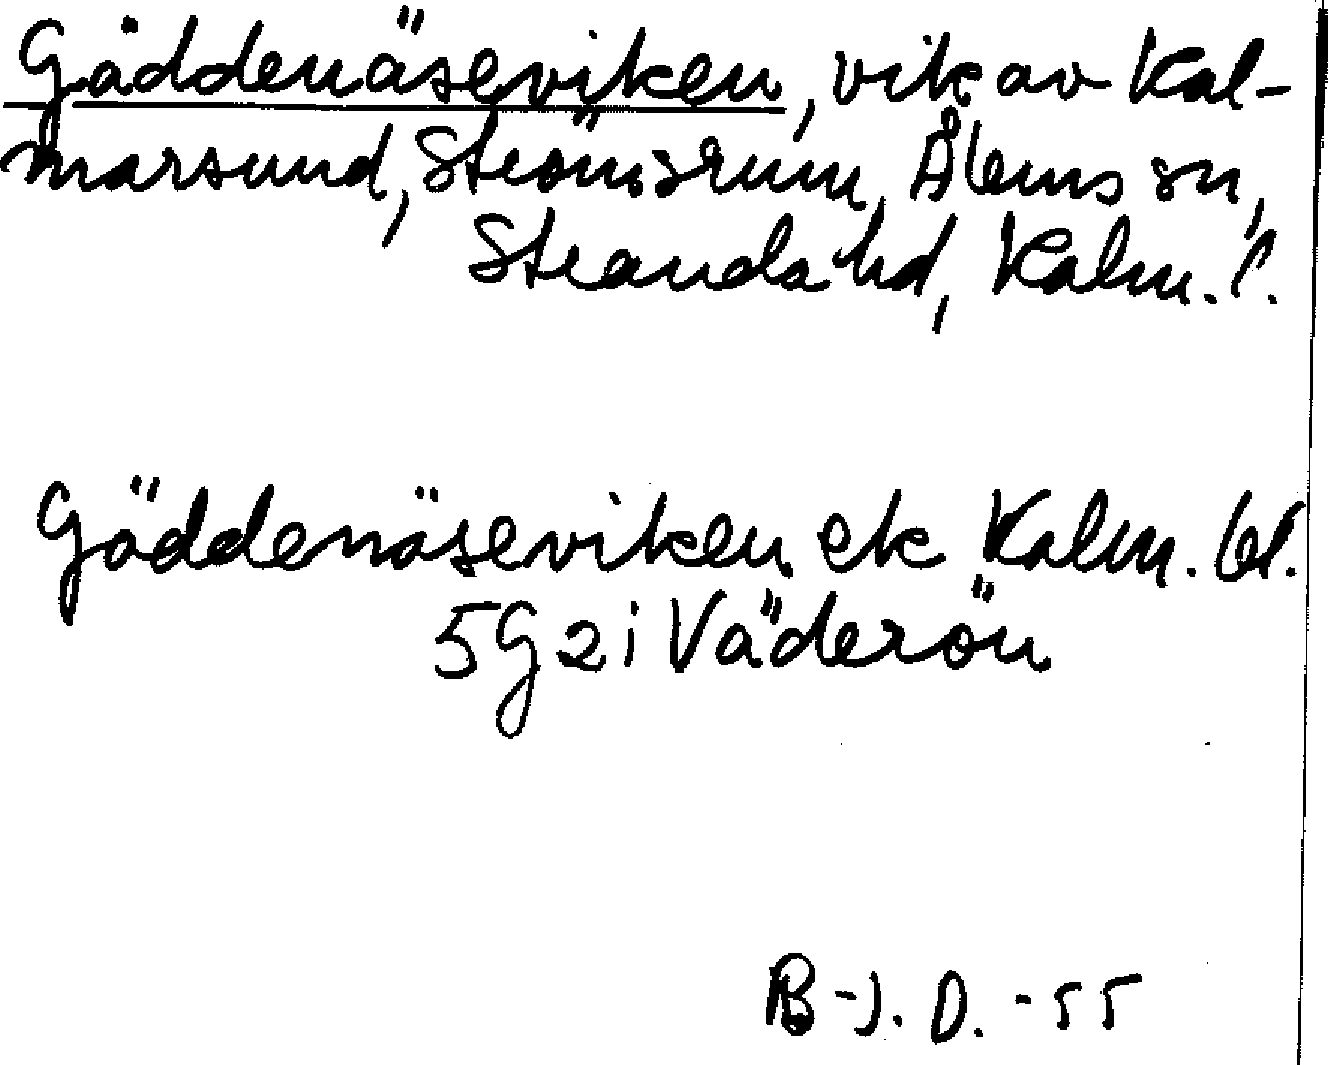 Gäddenäseviken, vik av Kal-
marsund, Strömsrum, Ålems sn,
Stranda hd, Kalm. l.
Gäddenäseviken ek Kalm. bl.
5G2i Väderön
B-J. D. -55